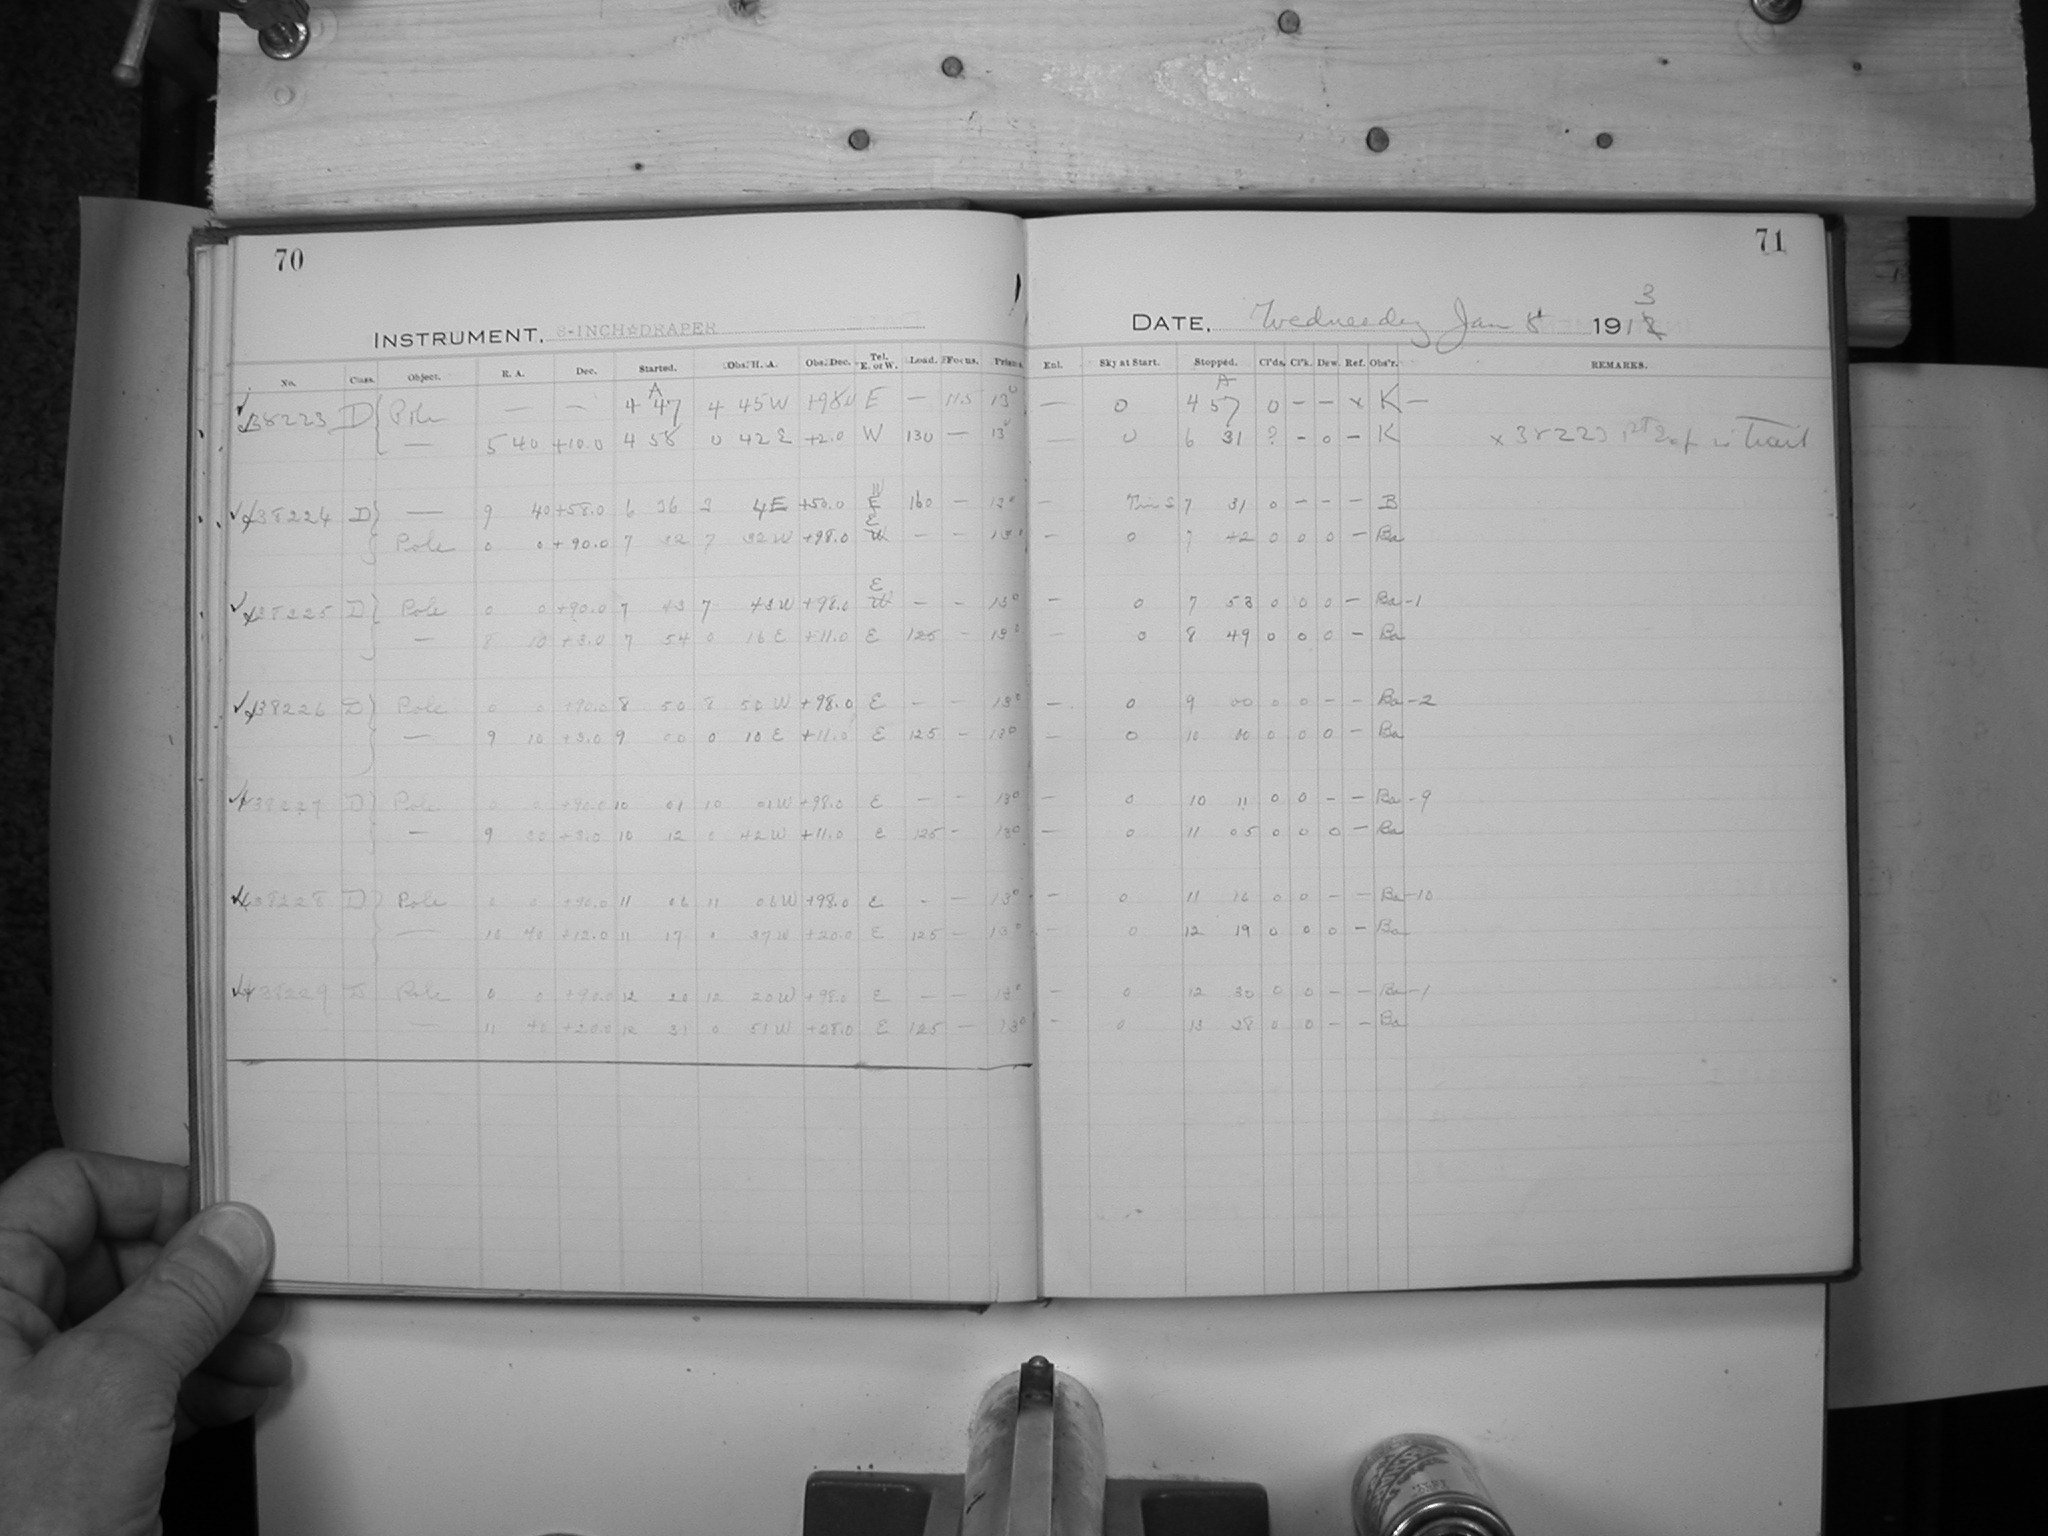 70
71
INSTRUMENT, 8-INCH☆DRAPER
DATE, Wednesday Jan 8 1913
No. Class. Object. R. A. Dec. Started. Obs. H. A. Obs. Dec. Tel. E. or W. Load. Focus. Prism. Enl. Sky at Start. Stopped. Cl'ds. Cl'k. Dew. Ref. Obs'r. REMARKS.
A A
38223 D { Pole — — 4 47 4 45 W +98.0 E — 11.5 13° — 0 4 57 0 – – x K –
— 5 40 +10.0 4 58 0 42 E +2.0 W 130 — 13° — 0 6 31 ? – 0 – K x 38223
38224 D } — 9 40 +58.0 6 36 3 4 E +50.0 E 160 — 13° — 7 31 0 – – – B
Pole 0 0 +90.0 7 32 7 32 W +98.0 E – – 13° 0 7 42 0 0 0 – Ba
38225 D } Pole 0 0 +90.0 7 43 7 43 W +98.0 E – – 13° – 0 7 53 0 0 0 – Ba –1
— 8 10 +3.0 7 54 0 16 E +11.0 E 125 – 13° 0 8 49 0 0 0 – Ba
38226 D } Pole 0 0 +90.0 8 50 8 50 W +98.0 E – – 13° – 0 9 00 0 0 – – Ba –2
— 9 10 +3.0 9 00 0 10 E +11.0 E 125 – 13° – 0 10 00 0 0 0 – Ba
38227 D } Pole 0 0 +90.0 10 01 10 01 W +98.0 E – – 13° – 0 10 11 0 0 – – Ba –9
— 9 30 +3.0 10 12 0 42 W +11.0 E 125 – 13° – 0 11 05 0 0 0 – Ba
38228 D } Pole 0 0 +90.0 11 06 11 06 W +98.0 E – – 13° – 0 11 16 0 0 – – Ba –10
— 10 40 +12.0 11 17 0 37 W +20.0 E 125 – 13° – 0 12 19 0 0 0 – Ba
38229 D Pole 0 0 +90.0 12 20 12 20 W +98.0 E – – 13° – 0 12 30 0 0 – – Ba –1
— 11 40 +20.0 12 31 0 51 W +28.0 E 125 – 13° – 0 13 28 0 0 – – Ba